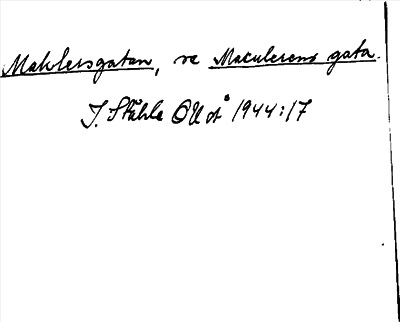 Mahlersgatan, se Maculerens gata.
J. Ståhle OUoÅ 1944:17